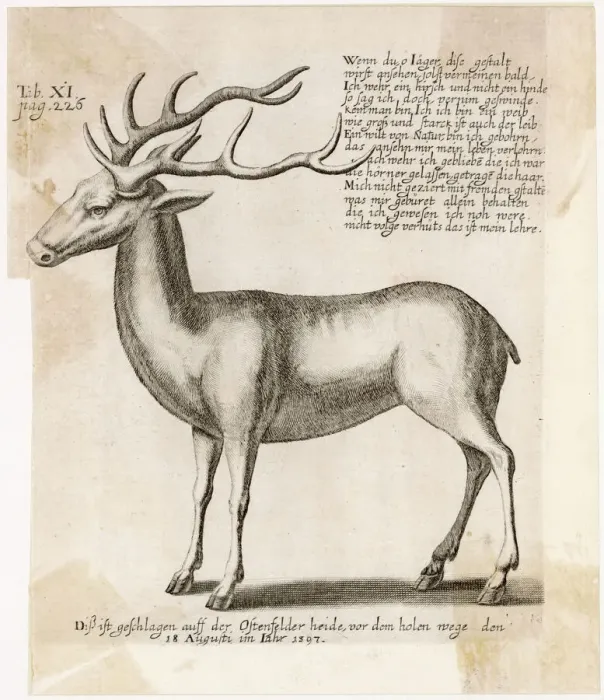 Tab. XI.
pag. 226
Wenn du o Iäger dise gestalt
wirst ansehen solst vermeinen bald
Ich wehr ein hirsch und nicht ein hinde
so sag ich doch verum geswinde.
kein man bin Ich ich bin ein weib
wie groß und starck ist auch der leib
Ein wilt von Natur bin ich gebohrn
das ansehn mir mein leben verlohrn
ach wehr ich gebliebē die ich war
die hörner gelassen getragē die haar.
Mich nicht geziert mit fromden gstalte
was mir gebüret allein behalten
die ich gewesen ich noh were
nicht volge verhuts das ist mein lehre.
Diß ist geschlagen auff der Ostenfelder heide, vor dem holen wege den
18 Augusti im Iahr 1597.